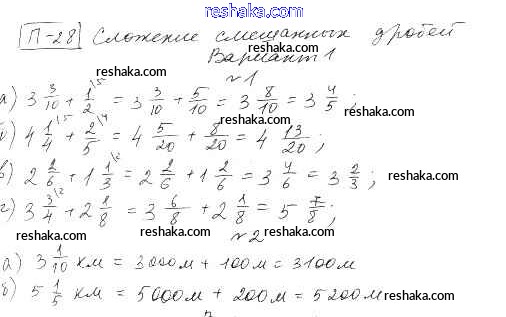 reshaka.com
П-28 Сложение смешанных дробей
reshaka.com
Вариант 1
reshaka.com
№1
reshaka.com
а) 3 3/10 + 1/2 \5 = 3 3/10 + 5/10 = 3 8/10 = 3 4/5 ;
reshaka.com
reshaka.com
б) 4 1/4 \5 + 2/5 \4 = 4 5/20 + 8/20 = 4 13/20 ;
reshaka.com
reshaka.com
в) 2 2/6 + 1 1/3 \2 = 2 2/6 + 1 2/6 = 3 4/6 = 3 2/3 ; reshaka.com
г) 3 3/4 \2 + 2 1/8 = 3 6/8 + 2 1/8 = 5 7/8 ;
reshaka.com
reshaka.com №2 reshaka.com
а) 3 1/10 км = 3000м + 100м = 3100м
б) 5 1/5 км = 5000м + 200м = 5200м reshaka.com
reshaka.com